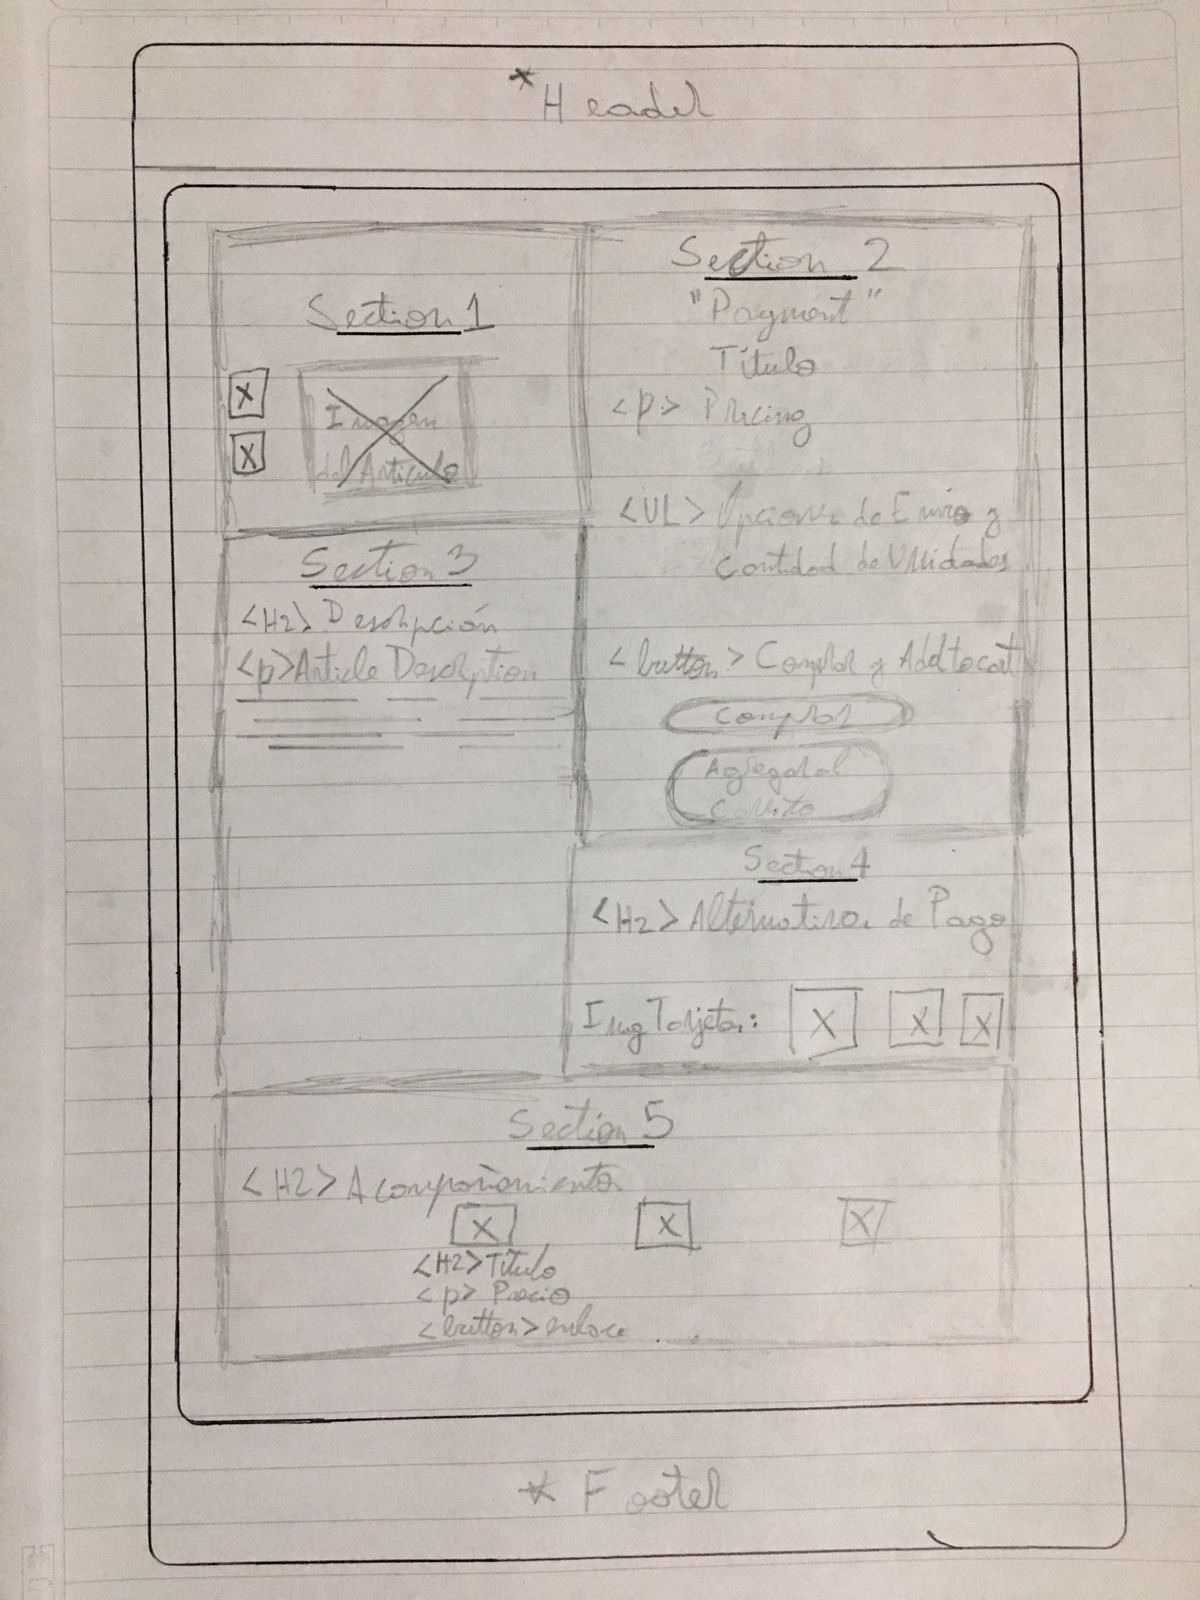 *Header
Section 1
X
X
Imagen
del Articulo
Section 2
"Payment"
Título
<p> Pricing
<UL> Opciones de Envio y
Cantidad de Unidades
<button> Comprar y Add to cart
Comprar
Agregar al
Carrito
Section 3
<H2> Descripción
<p> Article Description
Section 4
<H2> Alternativas de Pago
Img Tarjetas:
X
X
X
Section 5
<H2> Acompañamientos
X
X
X
<H2> Título
<p> Precio
<button> enlace . . .
* Footer